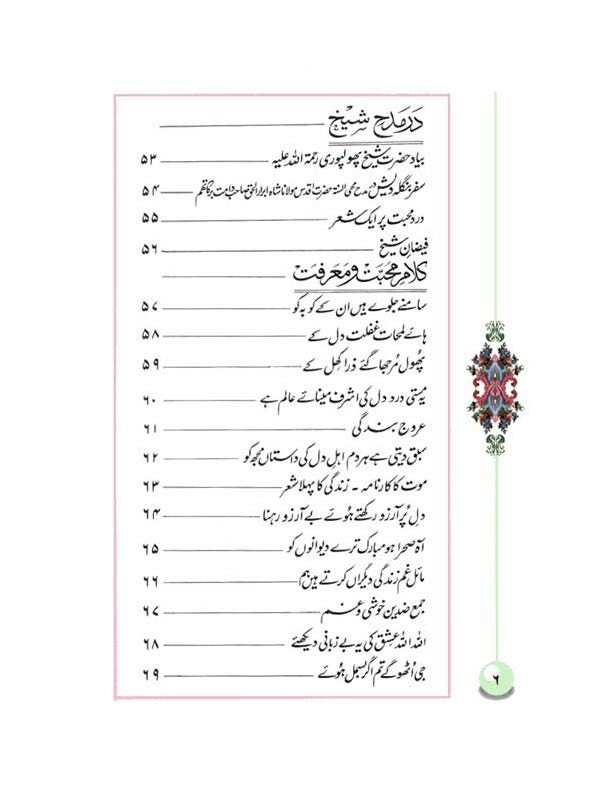 در مدح شیخ
بیاد حضرت شیخ پھولپوری رحمۃ اللہ علیہ ۵۳
سفر بنگلہ دیش در مدح محی السنۃ حضرت اقدس مولانا شاہ ابرار الحق صاحب دامت برکاتہم ۵۴
درد محبت پر ایک شعر ۵۵
فیضانِ شیخ ۵۶
کلامِ محبت و معرفت
سامنے جلوے ہیں ان کے کو بہ کو ۵۷
ہائے لمحات غفلت دل کے ۵۸
پھول مرجھا گئے ذرا کھِل کے ۵۹
یہ مستی دردِ دل کی اشرف مینائے عالم ہے ۶۰
عروج بندگی ۶۱
سبق دیتی ہے ہردم اہلِ دل کی داستاں مجھ کو ۶۲
موت کا کارنامہ ۔ زندگی کا پہلا شعر ۶۳
دل پُر آرزو رکھتے ہوئے بے آرزو رہنا ۶۴
آہ صحرا ہو مبارک ترے دیوانوں کو ۶۵
مائل غم زندگی دیگراں کرتے ہیں ہم ۶۶
جمع ضدین خوشی و غم ۶۷
اللہ اللہ عشق کی یہ بے زبانی دیکھئے ۶۸
جی اُٹھو گے تم اگر بسمل ہوئے ۶۹
۶